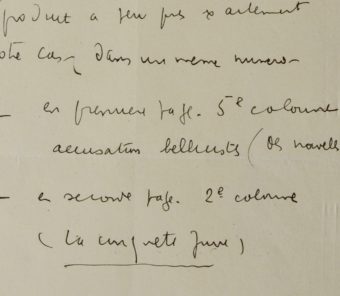 produit a peu près exactement
cas, dans un même numéro
— en première page. 5e colonne
accusation bellicistes (des nouvelles
— en seconde page. 2e colonne
(La conquête Juive)